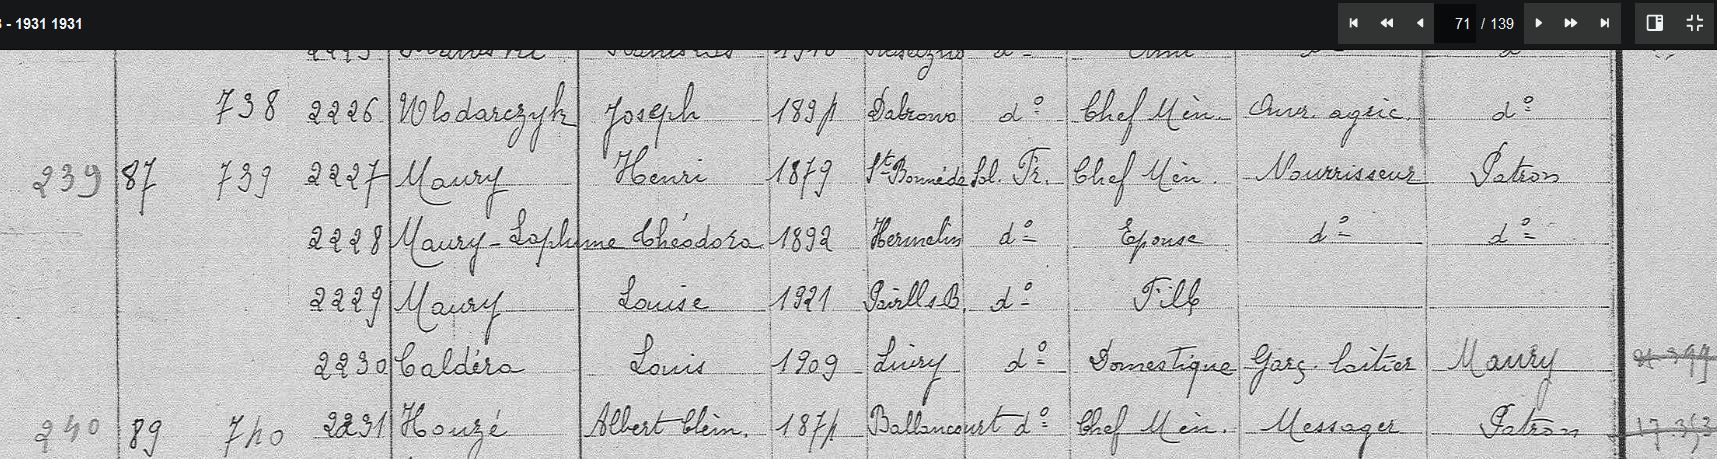 - 1931 1931 71 / 139
738 2226 Wlodarczyk Joseph 1894 Dabrowo dº Chef Mén. Ouvr. agric. dº
239 87 739 2227 Maury Henri 1879 St Bonnéde Sol. Fr. Chef Mén. Nourrisseur Patron
2228 Maury-Laplume Théodora 1892 Hermelin dº Epouse dº dº
2229 Maury Louise 1921 dº Fille
2230 Caldéra Louis 1909 Livry dº Domestique Garç. laitier Maury
240 89 740 2231 Houzé Albert Clém. 1874 Ballancourt dº Chef Mén. Messager Patron